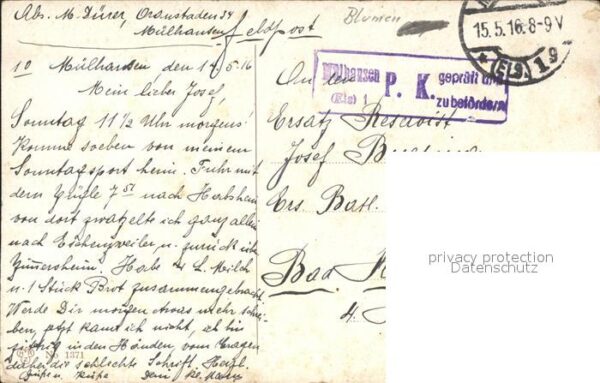 Abs. M. Dürer, Oranstaden 34
Mülhausen
Feldpost
Blumen
15.5.16.8-9V
(ELS.) 19
Mülhausen
(Els) 1
P. K.
geprüft und
zu befördern
10 Mülhausen, den 14.5.16
Mein lieber Josef
Sonntag 11 1/2 Uhr morgens!
Komme soeben von meinem
Sonntagsport heim. Fuhr mit
dem Zügle 7 51 nach Habsheim
von dort zwatzelte ich ganz allein
nach Eschenzweiler u. zurück über
Zimmersheim. Habe 4 L. Milch
u. 1 Stück Brot zusammengebracht.
Werde Dir morgen etwas mehr schrei-
ben, jetzt kann ich nicht, ich bin
zittrig in den Händen, vom Tragen
daher die schlechte Schrift. Herzl.
Grüße u. Küße Dein
No 1371
An den
Ersatz Reservist
Josef
Ers. Batl.
Bad
4.
privacy protection
Datenschutz